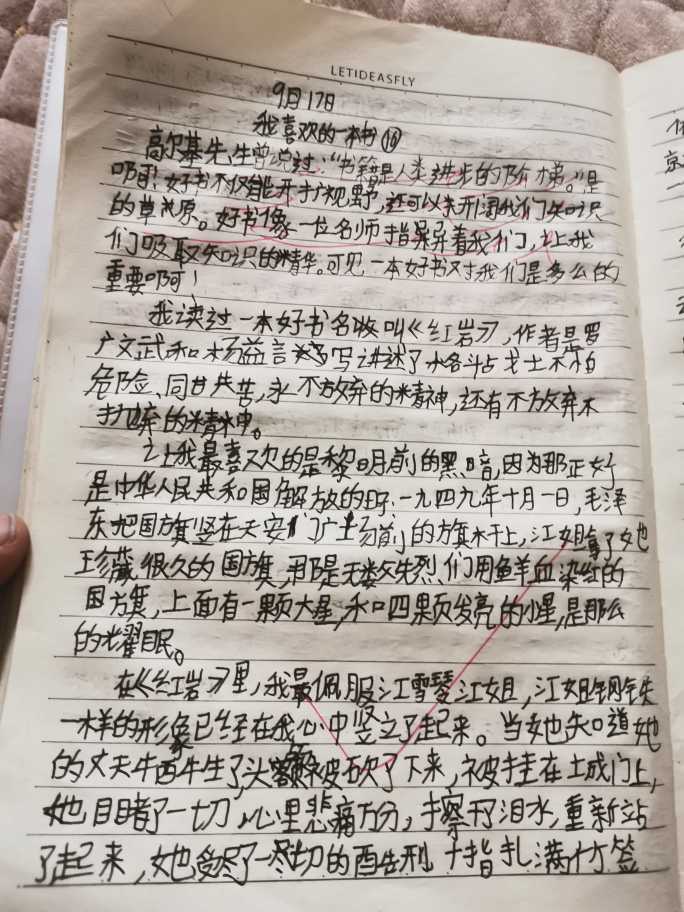 LETIDEASFLY
9月17日
我喜欢的一本书⑯
高尔基先生曾说过:“书籍是人类进步的阶梯。”是
啊!好书不仅能开扩视野,还可以来开阔我们知识
的草原。好书像一位名师指导着我们,让我
们吸取知识的精华。可见一本好书对我们是多么的
重要啊!
我读过一本好书名收叫《红岩》,作者是罗
广文武和杨益言 写讲述了 战士不怕
危险、同甘共苦,永不放弃的精神,还有不放弃不
抛弃的精神。
让我最喜欢的是黎明前的黑暗,因为那正好
是中华人民共和国解放的时:一九四九年十月一日,毛泽
东把国旗竖在天安门广场前的旗杆上,江姐拿了她
珍藏很久的国旗,那是无数先烈们用鲜血染红的
国旗,上面有一颗大星,和四颗发亮的小星,是那么
的耀眼。
在《红岩》里,我最佩服江雪琴江姐,江姐钢铁
一样的形象已经在我心中竖立了起来。当她知道她
的丈夫牺牲了,头 被砍了下来,被挂在土成门上,
她目睹了一切,心里悲痛万分,擦干泪水,重新站
了起来,她受尽了一切的酷刑 十指扎满竹签